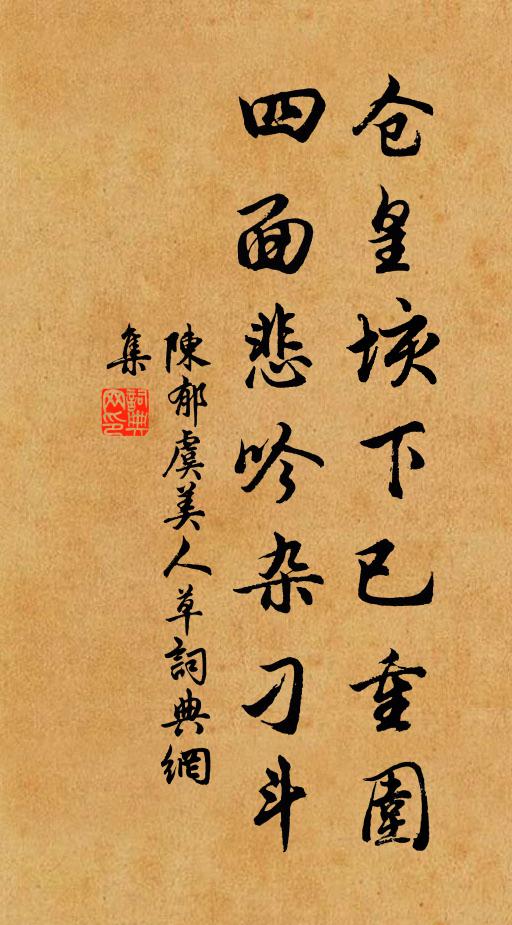 仓皇垓下已重圍
四面悲吟杂刁斗
陳郁虞美人草詞典網
集
詞典
网印